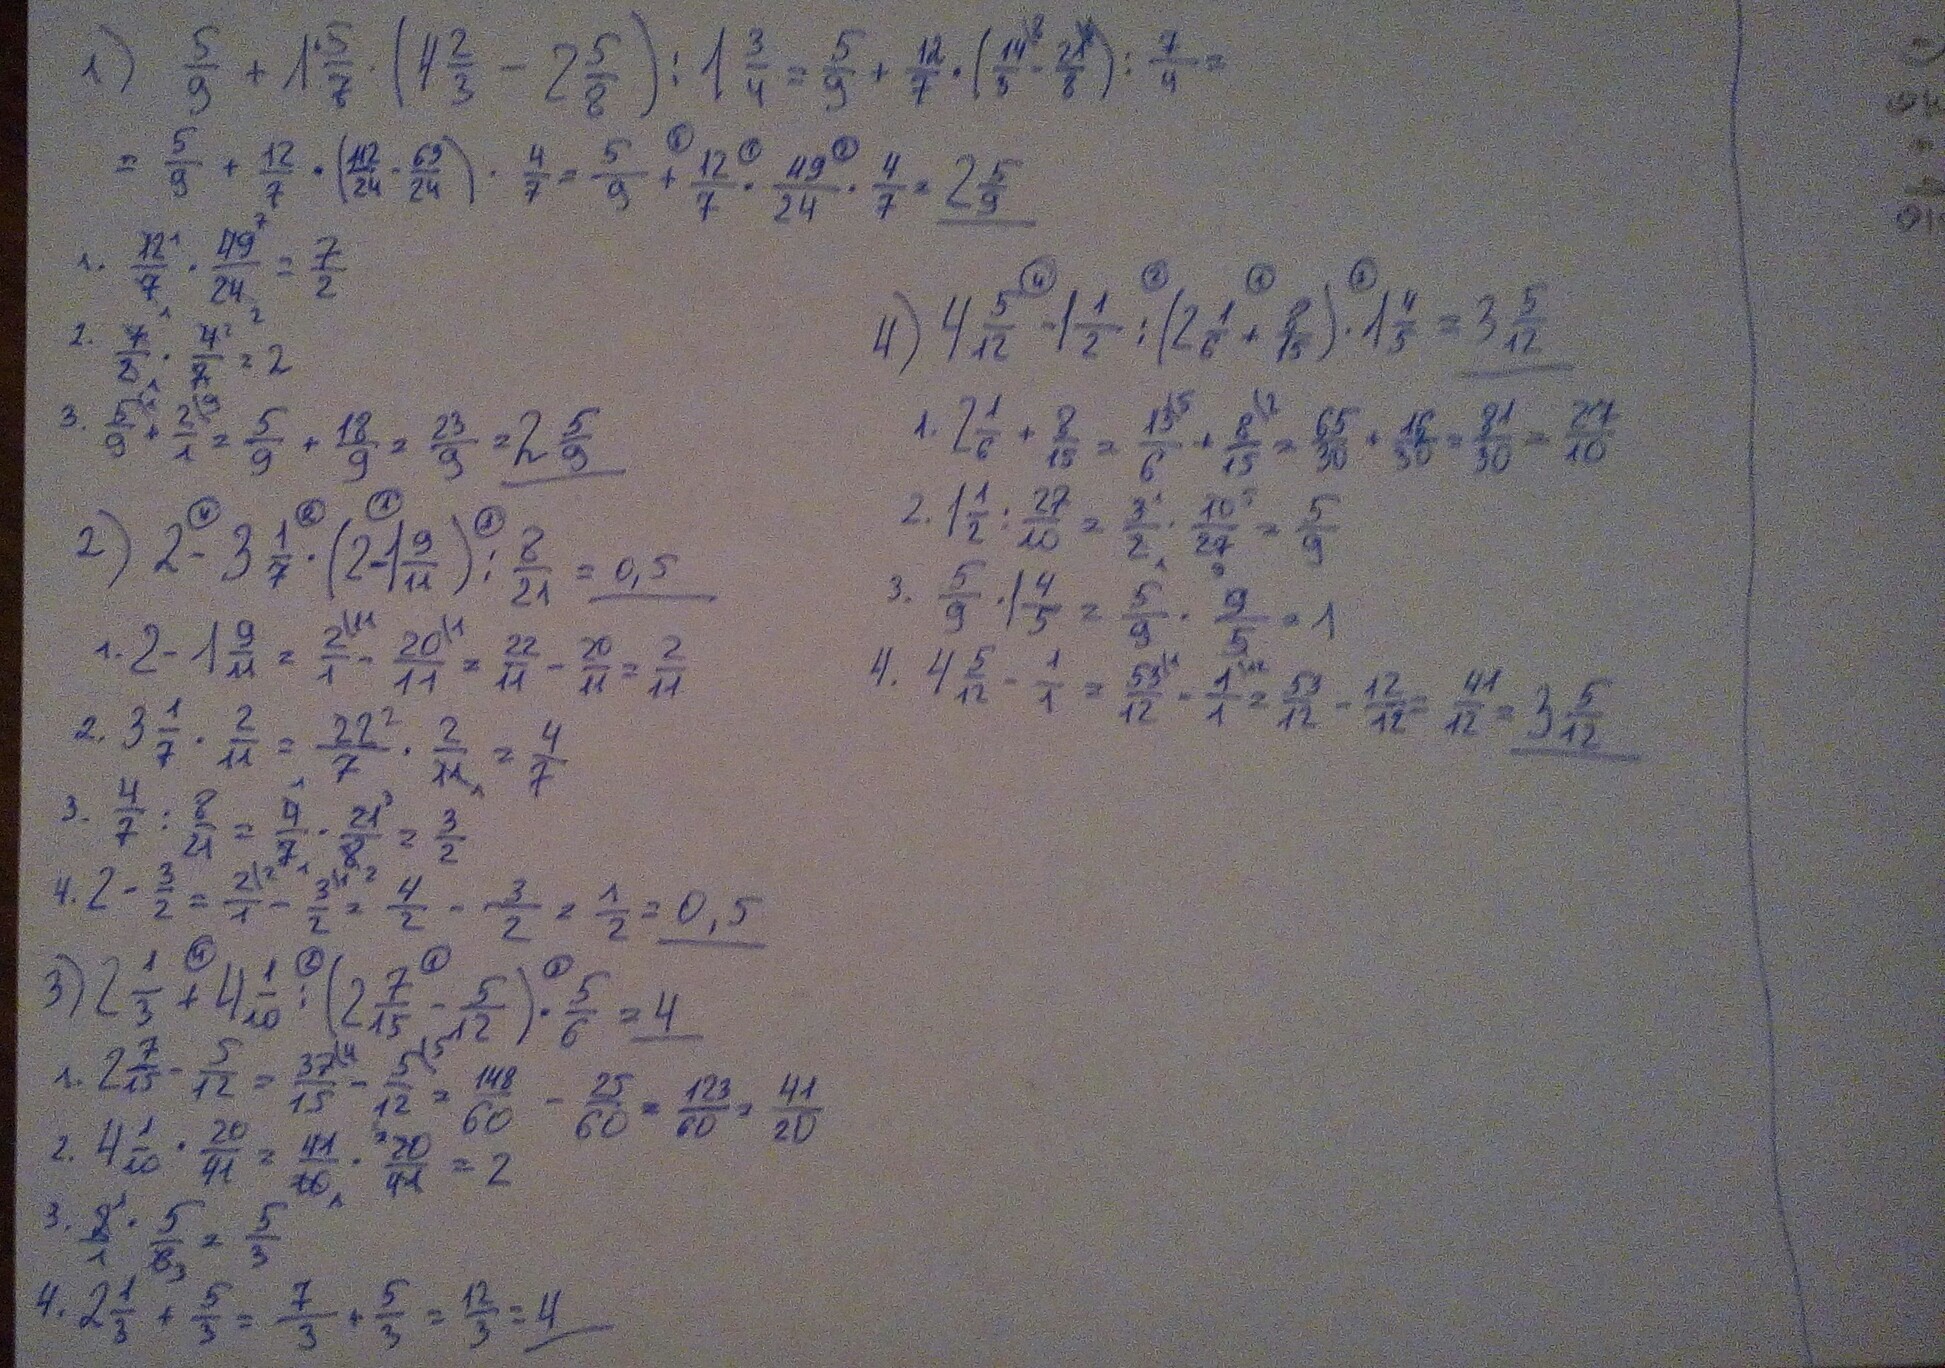 1) 5/9 + 1 5/7 · (4 2/3 - 2 5/8) : 1 3/4 = 5/9 + 12/7 · (14/3 \8 - 21/8) : 7/4 =
= 5/9 + 12/7 · (112/24 - 63/24) · 4/7 = 5/9 + 12/7 · 49/24 · 4/7 = 2 5/9
1. 12¹/7₁ · 49⁷/24₂ = 7/2
2. 7/2₁ · 4²/7₁ = 2
3. 5/9 \1 + 2/1 \9 = 5/9 + 18/9 = 23/9 = 2 5/9
2) 2 - 3 1/7 · (2 - 1 9/11) : 8/21 = 0,5
1. 2 - 1 9/11 = 2/1 \11 - 20/11 \1 = 22/11 - 20/11 = 2/11
2. 3 1/7 · 2/11 = 22²/7 · 2/11₁ = 4/7
3. 4/7 : 8/21 = 4¹/7₁ · 21³/8₂ = 3/2
4. 2 - 3/2 = 2/1 \2 - 3/2 \1 = 4/2 - 3/2 = 1/2 = 0,5
3) 2 1/3 + 4 1/10 : (2 7/15 - 5/12) · 5/6 = 4
1. 2 7/15 - 5/12 = 37/15 \4 - 5/12 \5 = 148/60 - 25/60 = 123/60 = 41/20
2. 4 1/10 · 20/41 = 41/10₁ · ²20/41 = 2
3. 2¹/1 · 5/6₃ = 5/3
4. 2 1/3 + 5/3 = 7/3 + 5/3 = 12/3 = 4
4) 4 5/12 - 1 1/2 : (2 1/6 + 8/15) · 1 4/5 = 3 5/12
1. 2 1/6 + 8/15 = 13/6 \5 + 8/15 \2 = 65/30 + 16/30 = 81/30 = 27/10
2. 1 1/2 : 27/10 = 3¹/2₁ · 10⁵/27₉ = 5/9
3. 5/9 · 1 4/5 = 5/9 · 9/5 = 1
4. 4 5/12 - 1/1 = 53/12 \1 - 1/1 \12 = 53/12 - 12/12 = 41/12 = 3 5/12